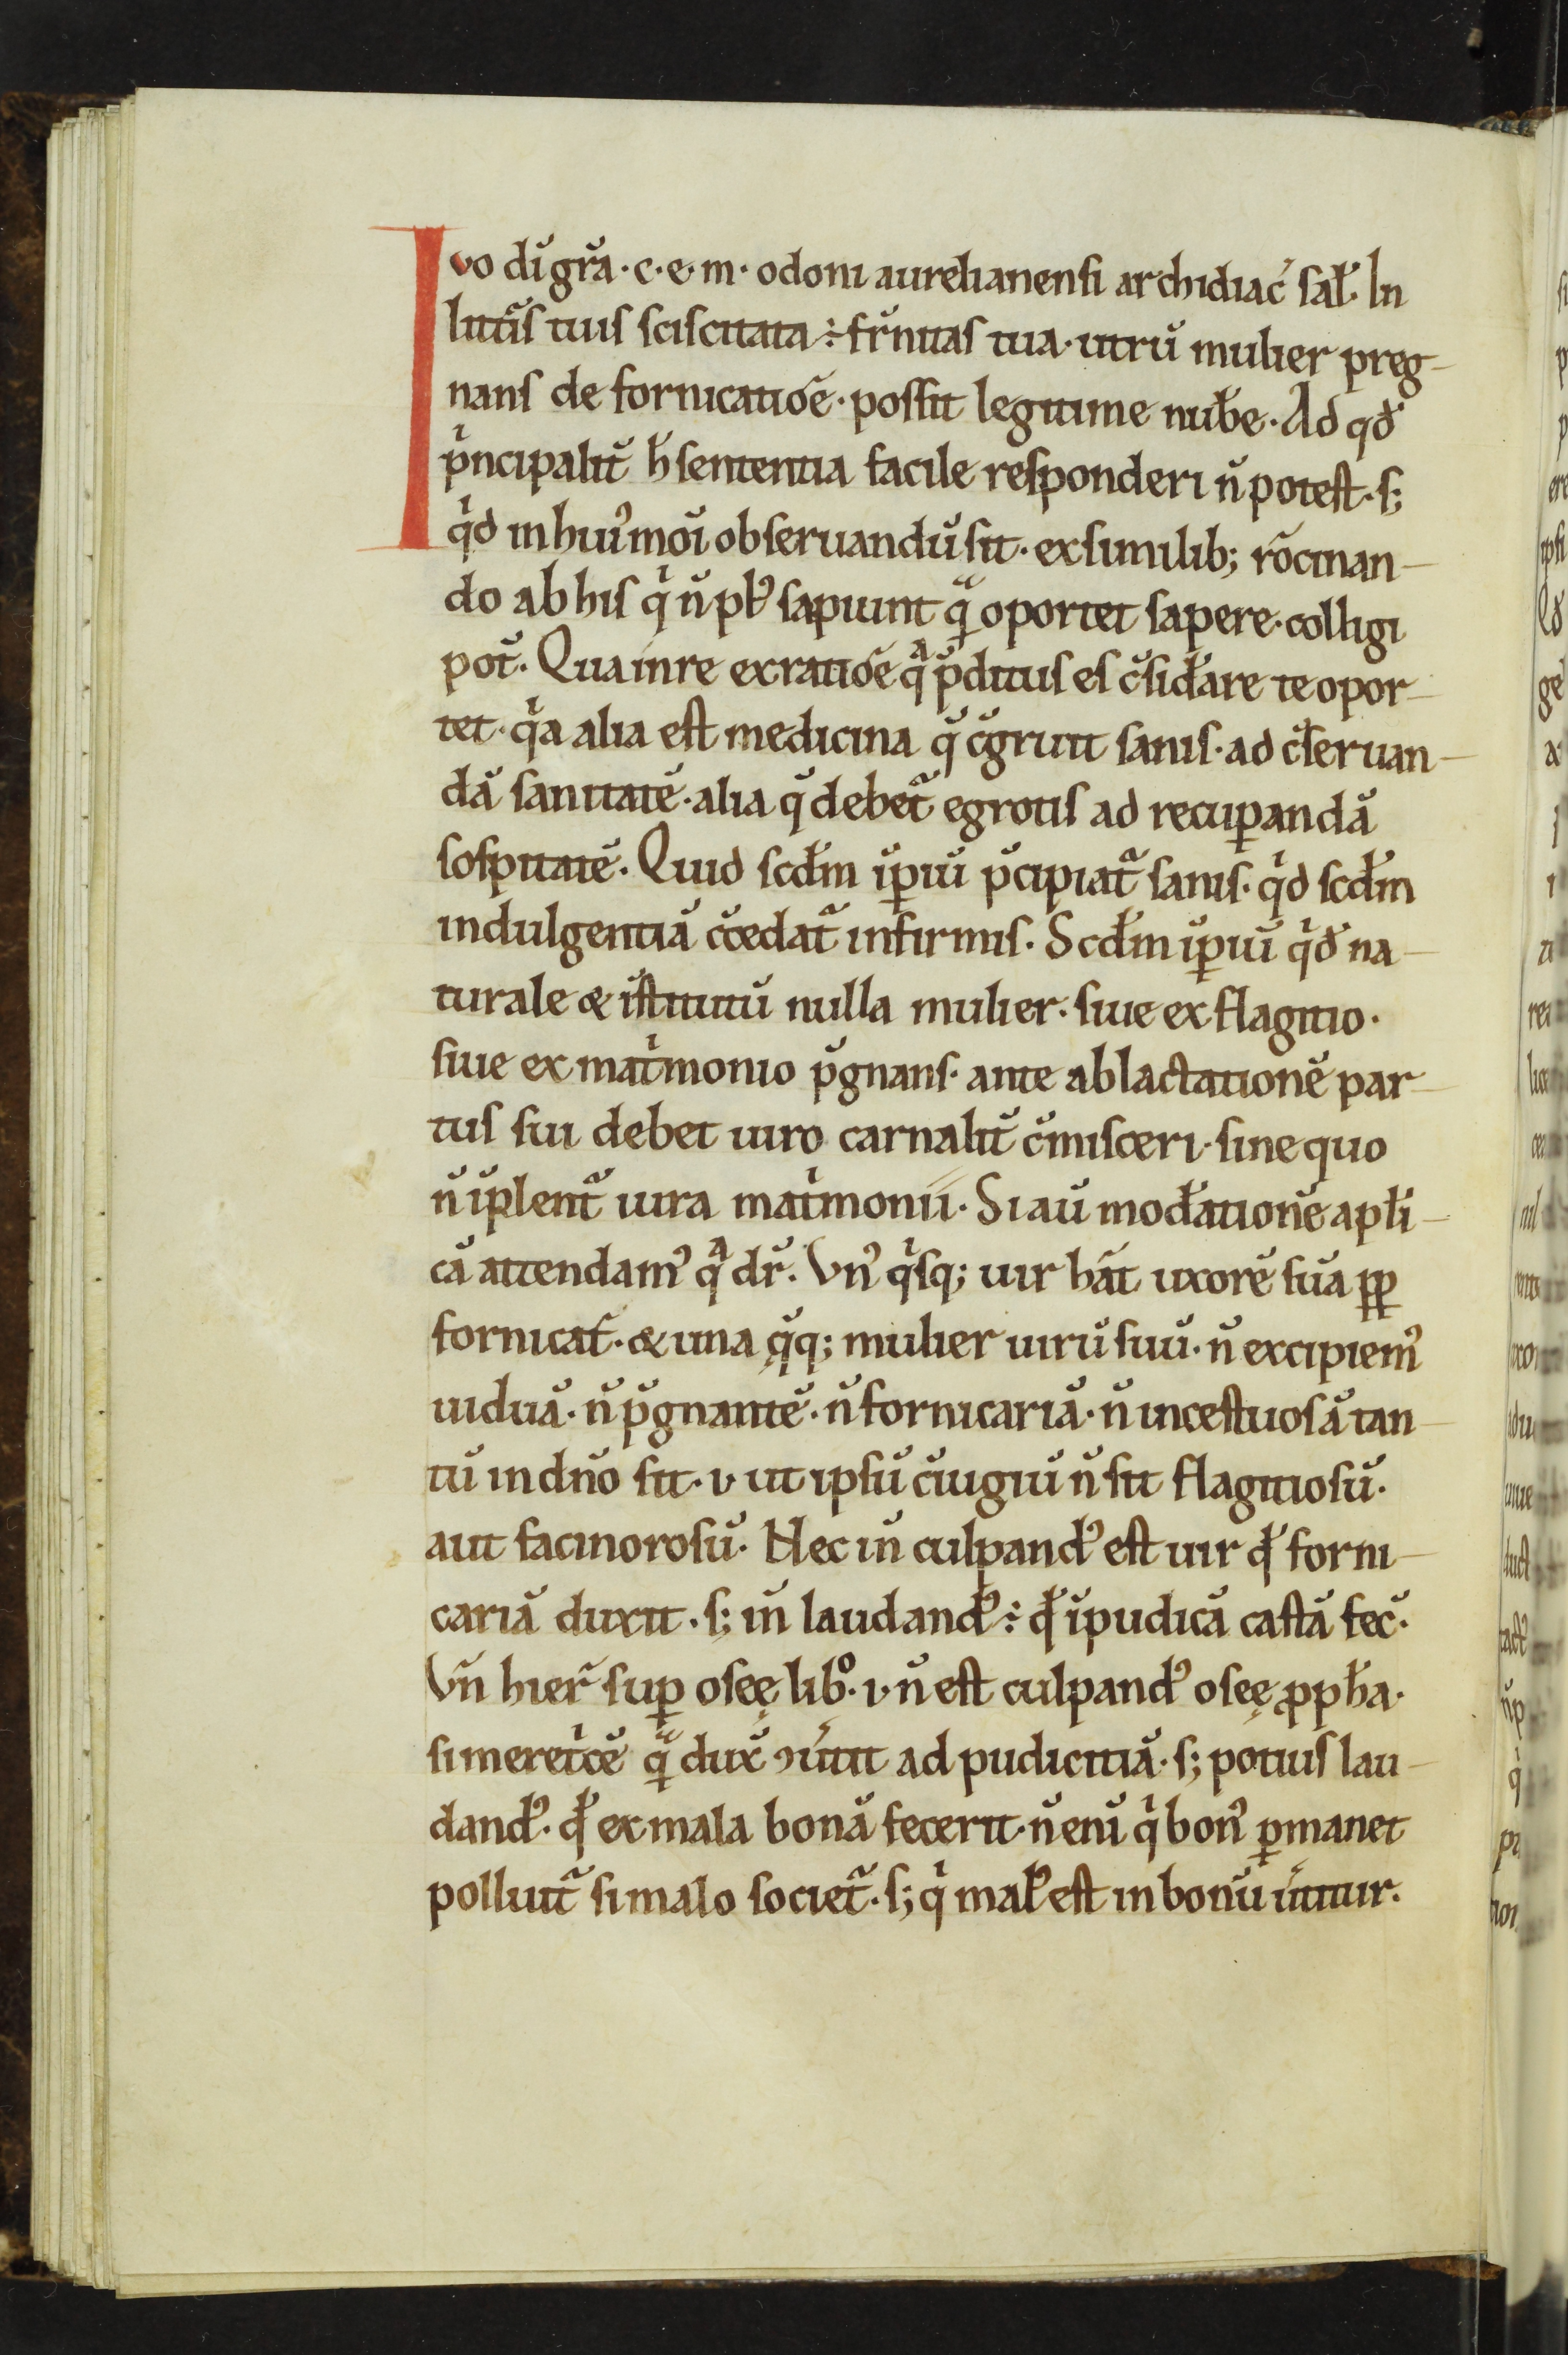 Ivo di̅ gr̅a · c · e · m · odoni aurelianensi archidiac̅ sal̅ · In
litt̅is tuis sciscitata ÷ fr̅nitas tua · utrū mulier preg-
nans de fornicatio̅e · possit legitime nub̅e · Ad qd̅
pͥncipalit̅ h̅ sententia facile responderi n̅ potest · s;
qͥd in hui᾿moi̅ obseruandū sit · ex similib; ro̅cinan-
do ab his qͥ n̅ pl᾿ sapiunt q̲ͣ oportet sapere · colligi
pot̅ · Qua in re ex ratio̅e qͣ p̅ditus es c̅sid̅are te opor-
tet · qͥa alia est medicina q̅ c̅gruit sanis · ad c̅seruan-
dā sanitatē · alia q̅ debet̃ egrotis ad recuꝑandā
sospitatē · Quid scd̅m i̅ꝑiū p̅cipiat̃ sanis · qͥd scd̅m
indulgentiā c̅cedat̃ infirmis · Scd̅m i̅ꝑiū qͥd̅ na-
turale & i̅stitutū nulla mulier · siue ex flagitio ·
siue ex mat̅ͥmonio p̅gnans · ante ablactationē par-
tus sui debet uiro carnalit̅ c̅misceri · sine quo
n̅ i̅plent̃ iura mat̅ͥmonii · Si au̅ mod̅ationē apl̅i-
cā attendam᾿ qͣ dr̅ · Vn᾿ qͥsq; uir ha̅t uxorē suā ꝓꝑ
fornicat̅ · & una q̅q; mulier uirū suū · n̅ excipiem᾿
uiduā · n̅ p̅gnantē · n̅ fornicariā · n̅ incestuosā tan-
tū in dn̅o sit · i · ut ipsū c̅iugiū n̅ sit flagitiosū ·
aut facinorosū · Nec in̅ culpand᾿ est uir qd̅ forni-
cariā duxit · s; in̅ laudand᾿ ÷ qd̅ i̅pudicā castā fec̅ ·
Vn̅ hier̃ suꝑ oseę libº · i · n̅ est culpand᾿ oseę ꝓph̅a ·
si meret̅ͥcē q̲ͣ dux̅ ꝯu̅tit ad pudicitiā · s; potius lau-
dand᾿ · qd̅ ex mala bonā fecerit · n̅ eni̅ qͥ bon᾿ ꝑmanet
polluit̃ si malo societ̃ · s; qͥ mal᾿ est in bonū u̅titur ·